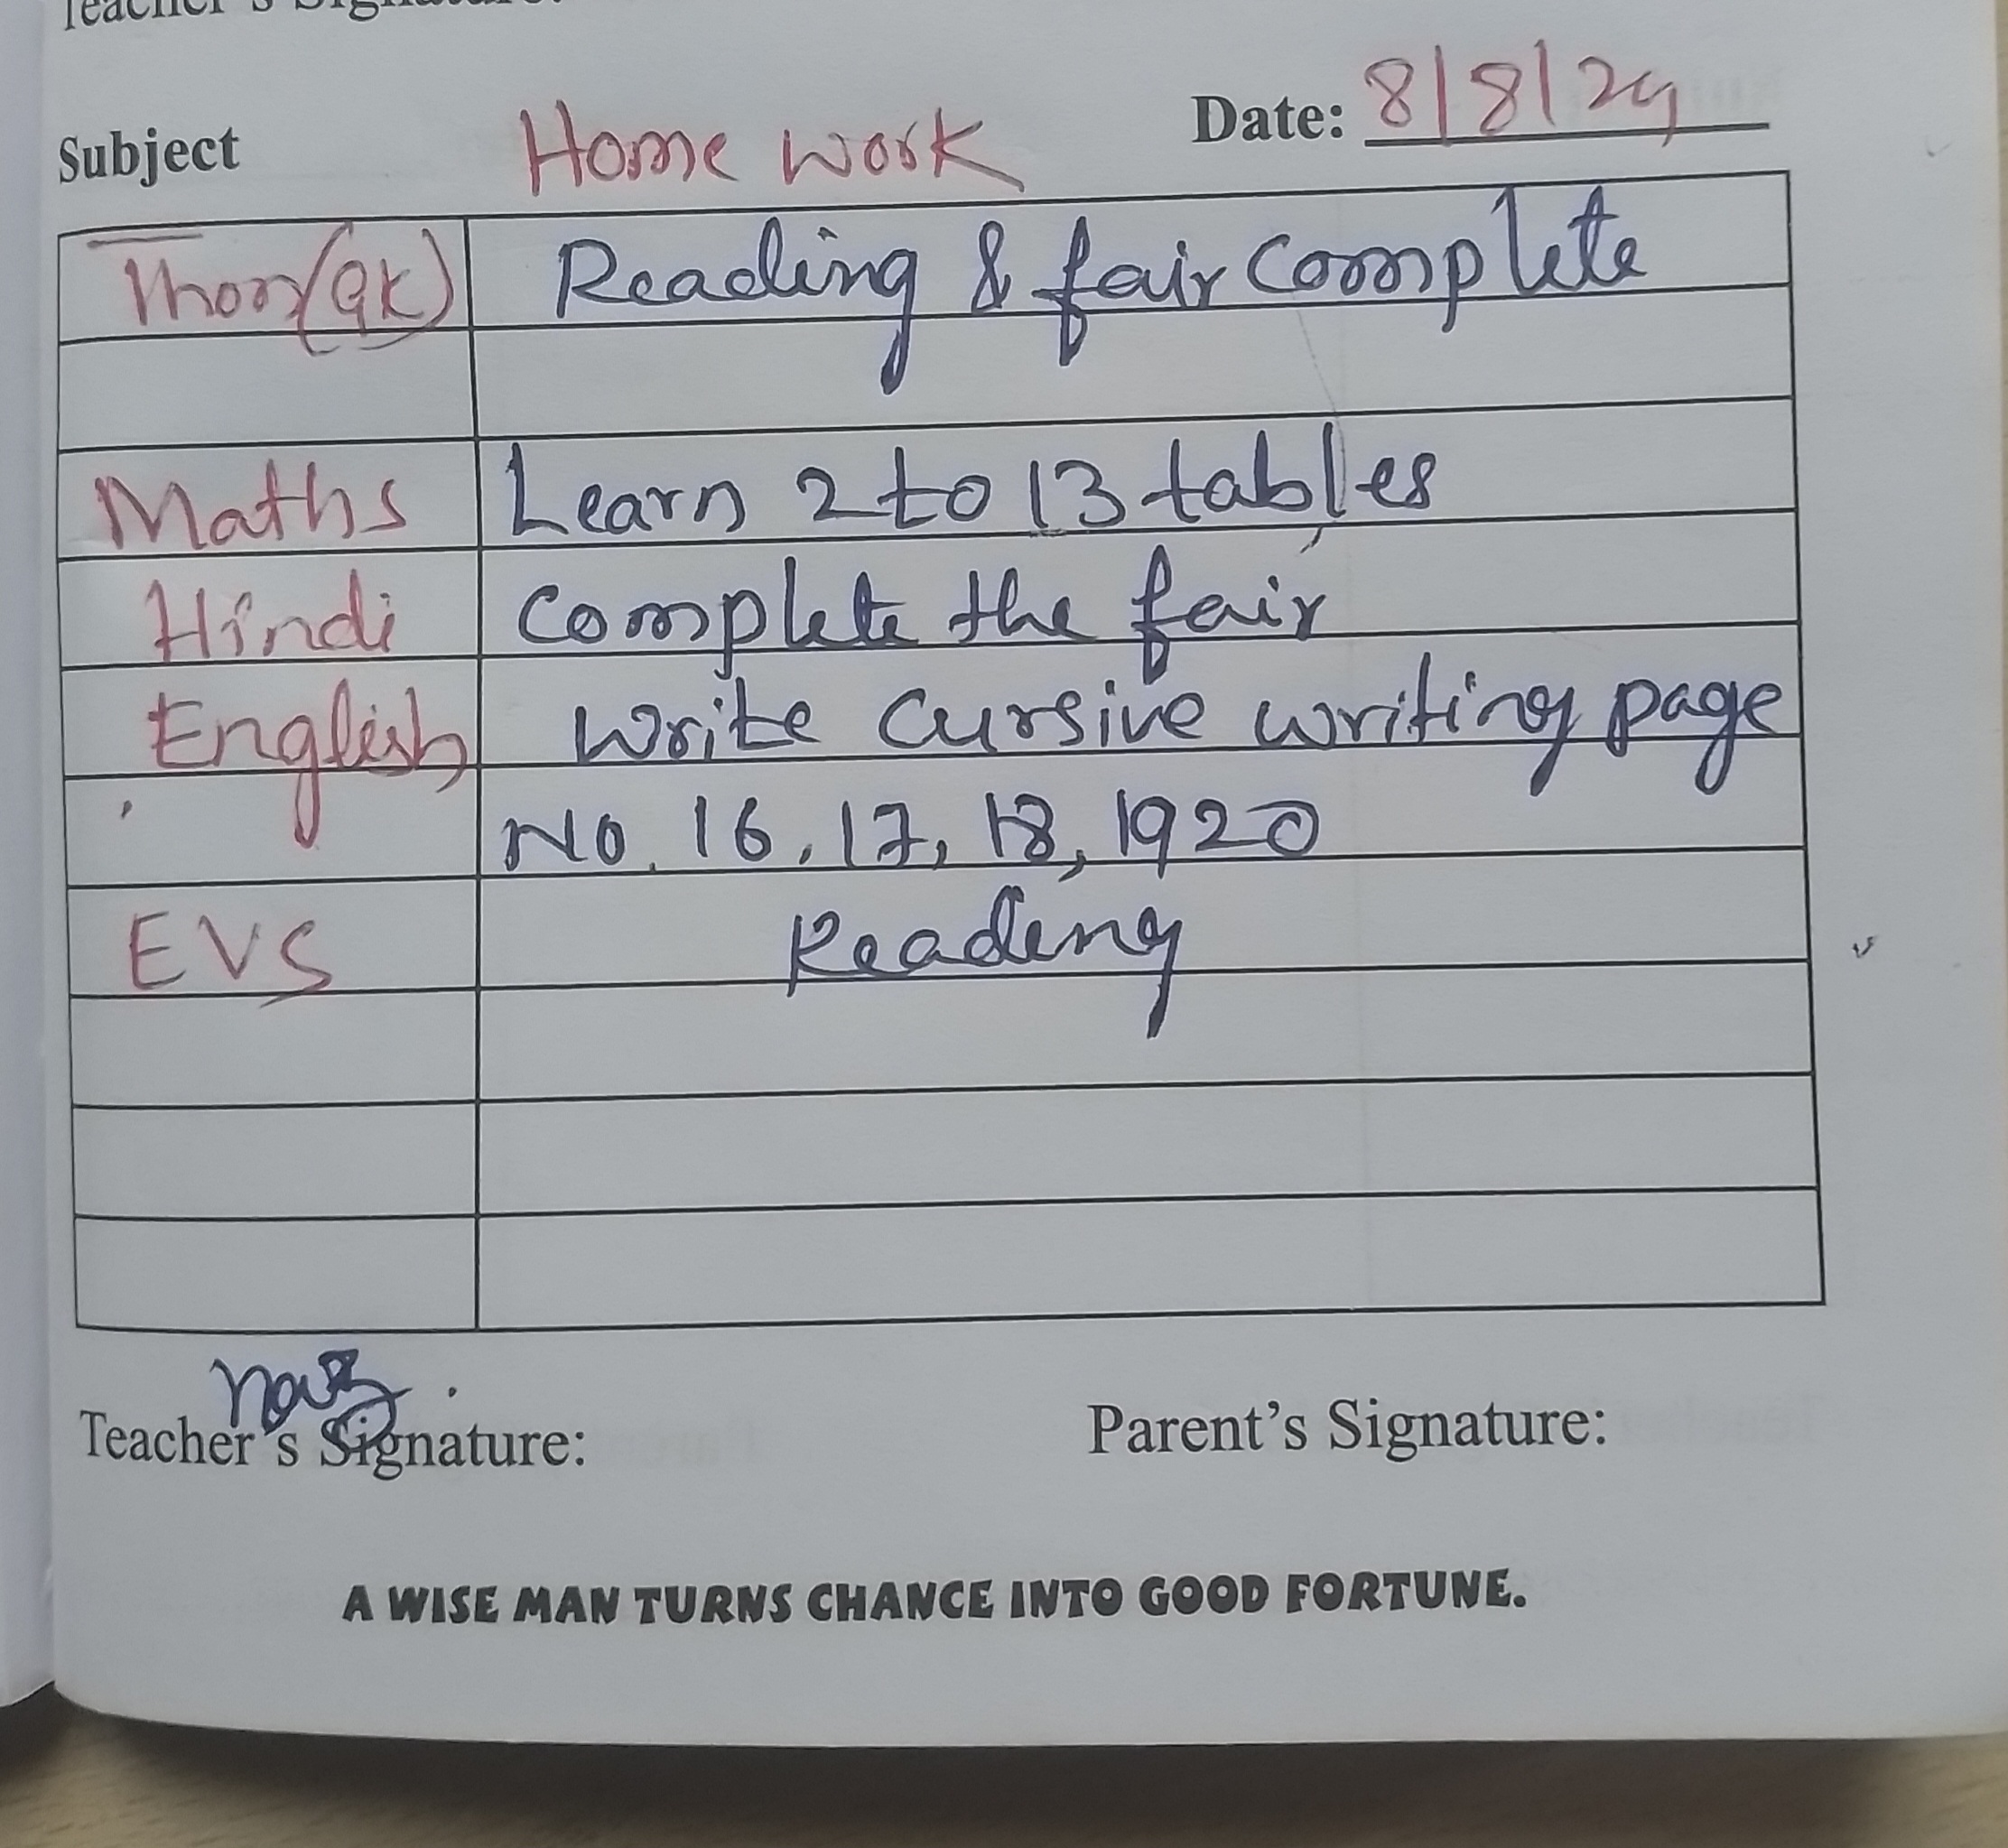 Teacher's Signature:
Subject Home work Date: 8/8/24
(GK) Reading & fair complete
Maths Learn 2 to 13 tables
Hindi complete the fair
English Write cursive writing page
No. 16, 17, 18, 1920
EVS Reading
Teacher's Signature: Parent's Signature:
A WISE MAN TURNS CHANCE INTO GOOD FORTUNE.